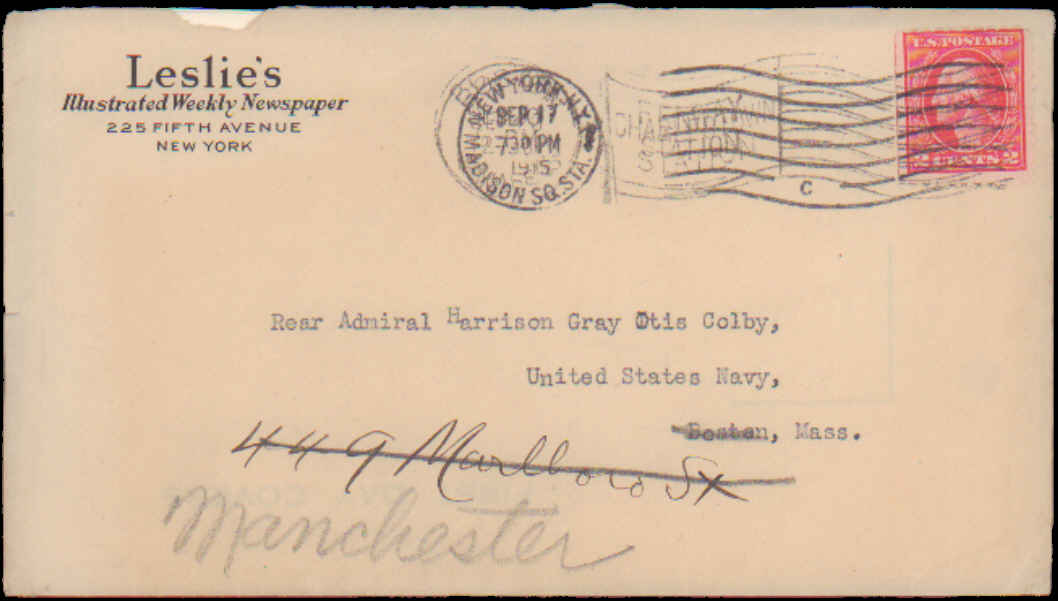 Leslie's
Illustrated Weekly Newspaper
225 FIFTH AVENUE
NEW YORK
NEW YORK, N.Y.
SEP 17
7 30 PM
1915
MADISON SQ. STA.
C
U.S. POSTAGE
2 CENTS 2
Rear Admiral Harrison Gray Otis Colby,
United States Navy,
Boston, Mass.
449 Marlboro St
Manchester